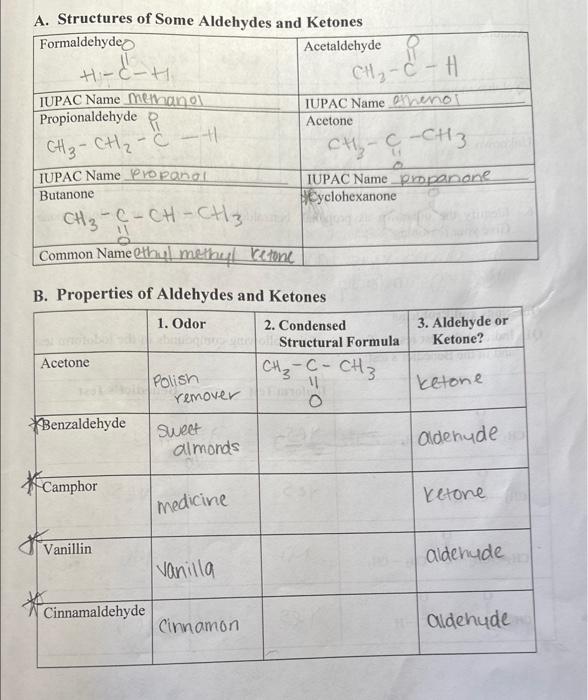 A. Structures of Some Aldehydes and Ketones
Formaldehyde
O
||
H-C-H
IUPAC Name methanol
Acetaldehyde
O
||
CH3-C-H
IUPAC Name ethenol
Propionaldehyde
O
||
CH3-CH2-C-H
IUPAC Name Propanol
Acetone
CH3-C-CH3
||
O
IUPAC Name propanone
Butanone
CH3-C-CH-CH3
||
O
Common Name ethyl methyl ketone
*Cyclohexanone
B. Properties of Aldehydes and Ketones
1. Odor
2. Condensed
Structural Formula
3. Aldehyde or
Ketone?
Acetone
Polish
remover
CH3-C-CH3
||
O
ketone
*Benzaldehyde
Sweet
almonds
aldehyde
*Camphor
medicine
ketone
*Vanillin
vanilla
aldehyde
*Cinnamaldehyde
cinnamon
aldehyde